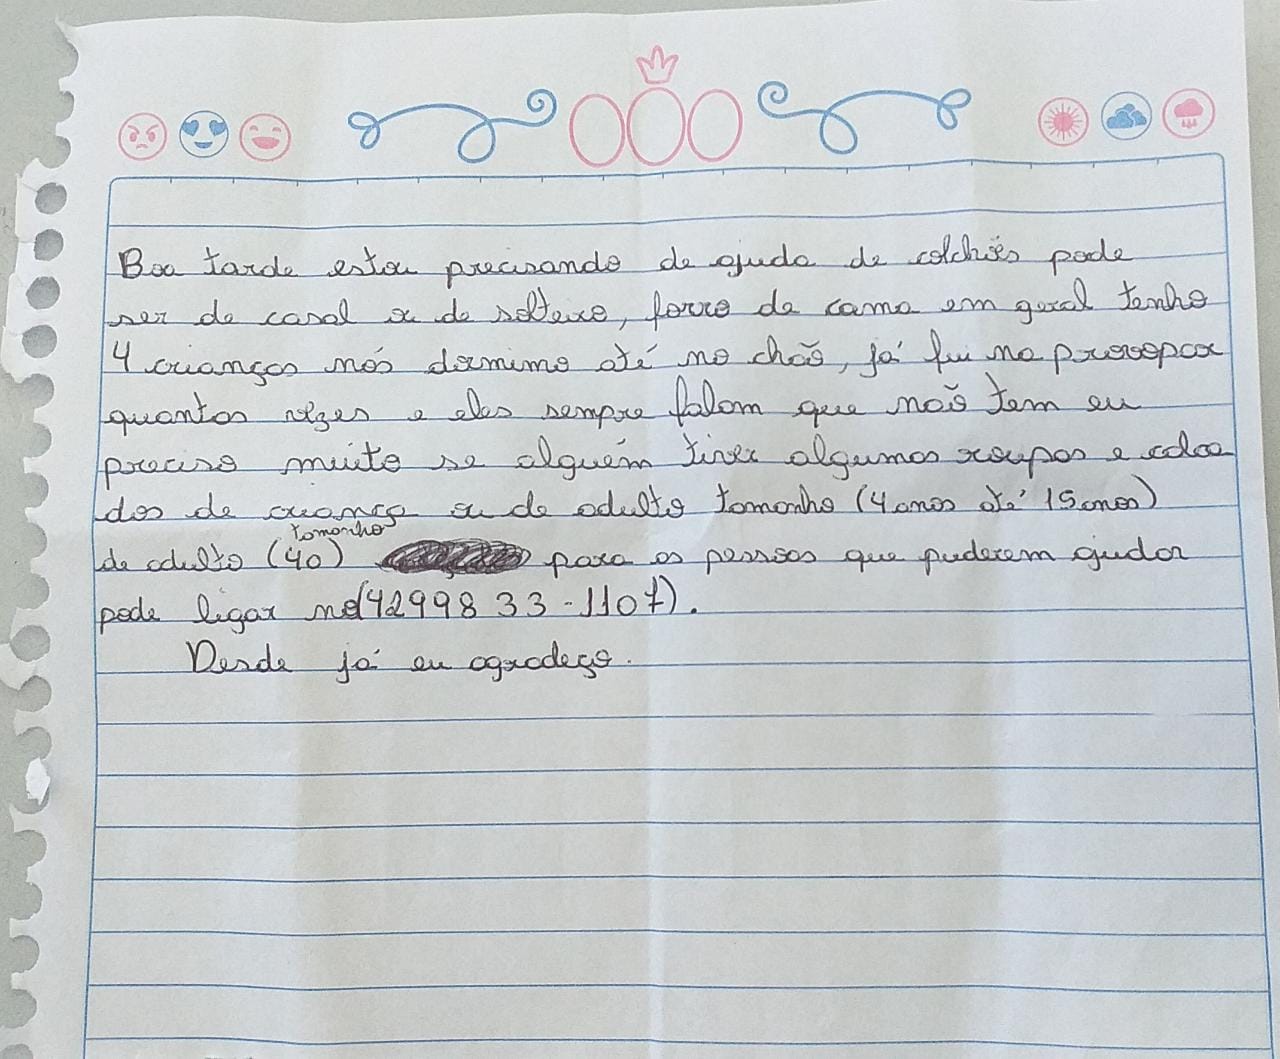 Boa tarde estou precisando de ajuda de colchões pode
ser de casal ou de solteiro, forro de cama em geral tenho
4 crianças nós dormimo até no chão, já fui na provopar
quantas vezes e eles sempre falam que não tem eu
preciso muito se alguém tiver algumas roupas e calça
dos de criança ou de adulto tamanho (4 anos até 15 anos)
tamanho
de adulto (40) para as pessoas que puderem ajudar
pode ligar no (42998 33-1107).
Desde já eu agradeço.